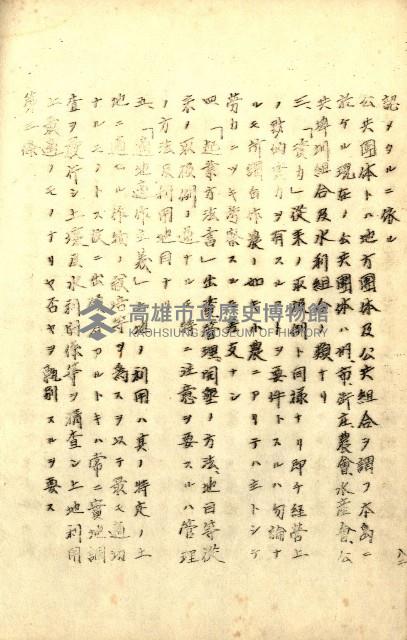 認ヲタルニ依ル
公共團体トハ地方團体及公共組合ヲ謂フ本島ニ
於ケル現在ノ公共團体ハ州市街庄農會水産會公
共埤圳組合及水利組合ノ類ナリ
三、「資力」從来ノ取扱例ト同様ナリ即チ経營上
ノ財的實力ヲ有スルヲ要件トスルハ勿論ナ
ルモ所謂自作農ノ如キ小農ニアリテハ主トシテ
勞力ニツキ考察スルモ差支ナシ
四、「起業方法書」出来管理開墾ノ方法、地目等從
来ノ取扱例ノ通ナルモ特ニ注意ヲ要スルハ管理
ノ方法及利用地目ナリ
五、「適地適作主義」土地ノ利用ハ其ノ特定ノ土
地ニ適スル作物ノ栽培ヲ為スヲ以テ最モ適切
ナルコトトス故ニ出願アルトキハ常ニ實地調
査ヲ敢行シ土壌及水利関係等ヲ精査シ土地利用
上最適ノモノナリヤ否ヤヲ甄別スルヲ要ス
第三條
高雄市立歷史博物館
KAOHSIUNG MUSEUM OF HISTORY